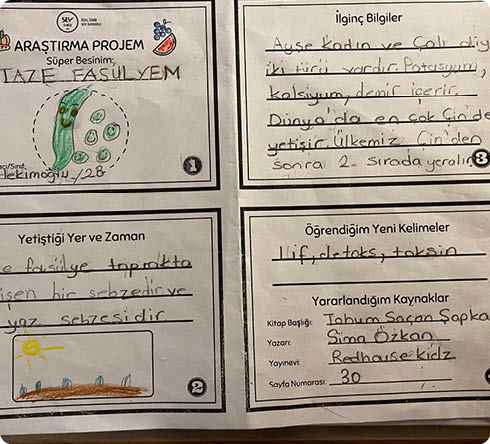 SEV
ÖZEL İZMİR
SEV İLKOKULU
ARAŞTIRMA PROJEM
Süper Besinim;
TAZE FASULYEM
acı/Sınıf:
Hekimoğlu / 2B
1
İlginç Bilgiler
Ayşe Kadın ve Çalı diy
iki türü vardır. Potasyum,
kalsiyum, demir içerir.
Dünya'da en çok Çin'de
yetişir. Ülkemiz Çin'den
sonra 2. sırada yeralır
3
Yetiştiği Yer ve Zaman
e fasülye toprakta
işen bir sebzedir ve
yaz sebzesidir
2
Öğrendiğim Yeni Kelimeler
lif, detoks, toksin
Yararlandığım Kaynaklar
Kitap Başlığı: Tohum Saçan Şapka
Yazarı: Sima Özkan
Yayınevi: Redhouse kidz
Sayfa Numarası: 30